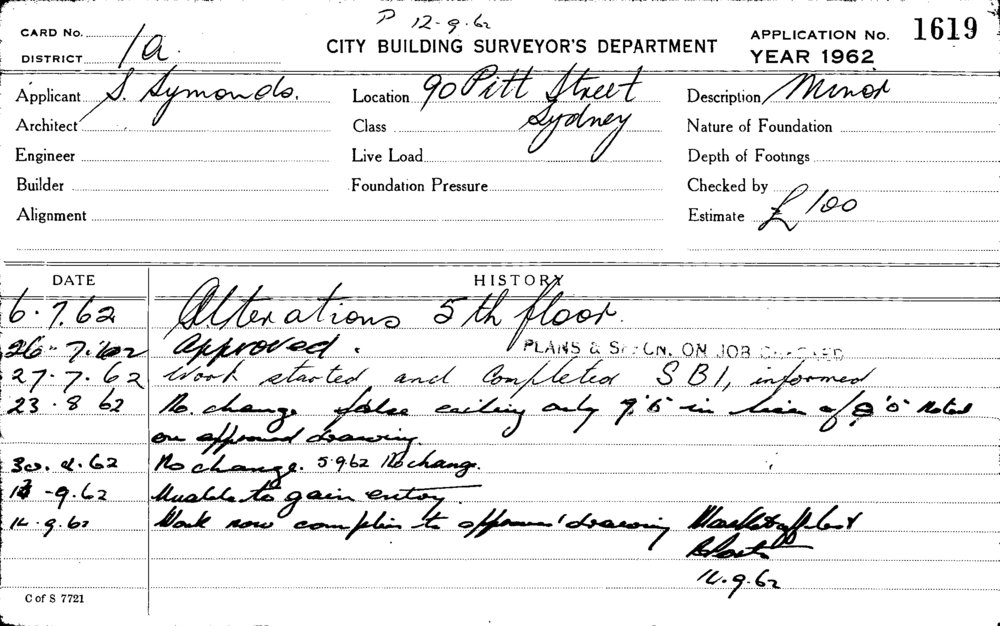 P 12-9-62
CARD No.
DISTRICT 1a.
CITY BUILDING SURVEYOR'S DEPARTMENT
APPLICATION No. 1619
YEAR 1962
Applicant S. Symonds. Location 90 Pitt Street Description Minor
Architect Class Sydney Nature of Foundation
Engineer Live Load Depth of Footings
Builder Foundation Pressure Checked by
Alignment Estimate £100
DATE HISTORY
6.7.62 Alterations 5th floor.
26.7.62 Approved. PLANS & SPFCN. ON JOB
27.7.62 Work started and Completed SBI, informed
23.8 62 No change false ceiling only 9'5" in lieu of noted
on approved drawing.
30.8.62 No change. 5.9.62 No change.
-9.62 Unable to gain entry.
14.9.62 Work now complies to approved drawing
14.9.62
C of S 7721